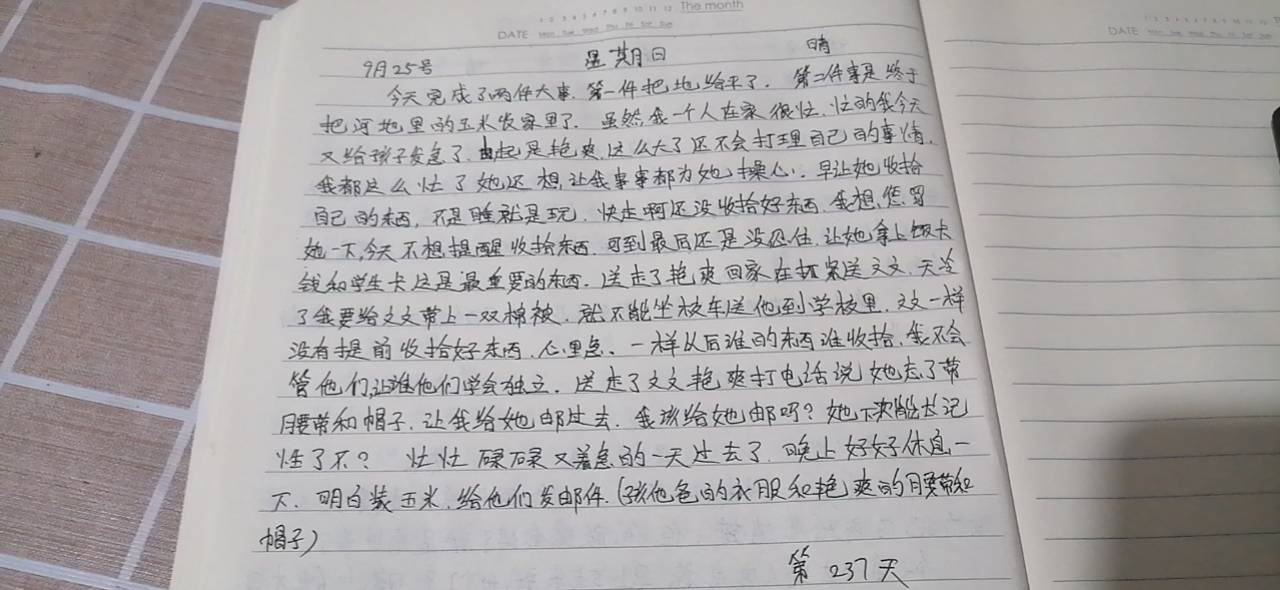 1 2 3 4 5 6 7 8 9 10 11 12 The month
DATE Mon Tue Wed Thu Fri Sat Sun
9月25号 星期日 晴
今天完成了两件大事.第一件把地给平了.第二件事是终于
把河地里的玉米收家里了.虽然我一个人在家很忙.忙的我今天
又给孩子发急了.起是艳爽.这么大了还不会打理自己的事情.
我都这么忙了她还想让我事事都为她操心.早让她收拾
自己的东西,不是睡就是玩.快走啊还没收拾好东西.我想惩罚
她一下,今天不想提醒收拾东西.可到最后还是没忍住.让她拿上饭卡
钱和学生卡这是最重要的东西.送走了艳爽回家在抓紧送文文.天冷
了我要给文文带上一双棉被.就不能坐校车送他到学校里.文文一样
没有提前收拾好东西.心里急.一样以后谁的东西谁收拾.我不会
管他们,让他们学会独立.送走了文文艳爽打电话说她忘了带
腰带和帽子.让我给她邮过去.我该给她邮吗?她下次能长记
性了不? 忙忙碌碌又着急的一天过去了.晚上好好休息一
下.明白装玉米.给他们发邮件.(孩他爸的衣服和艳爽的腰带和
帽子)
第 237 天